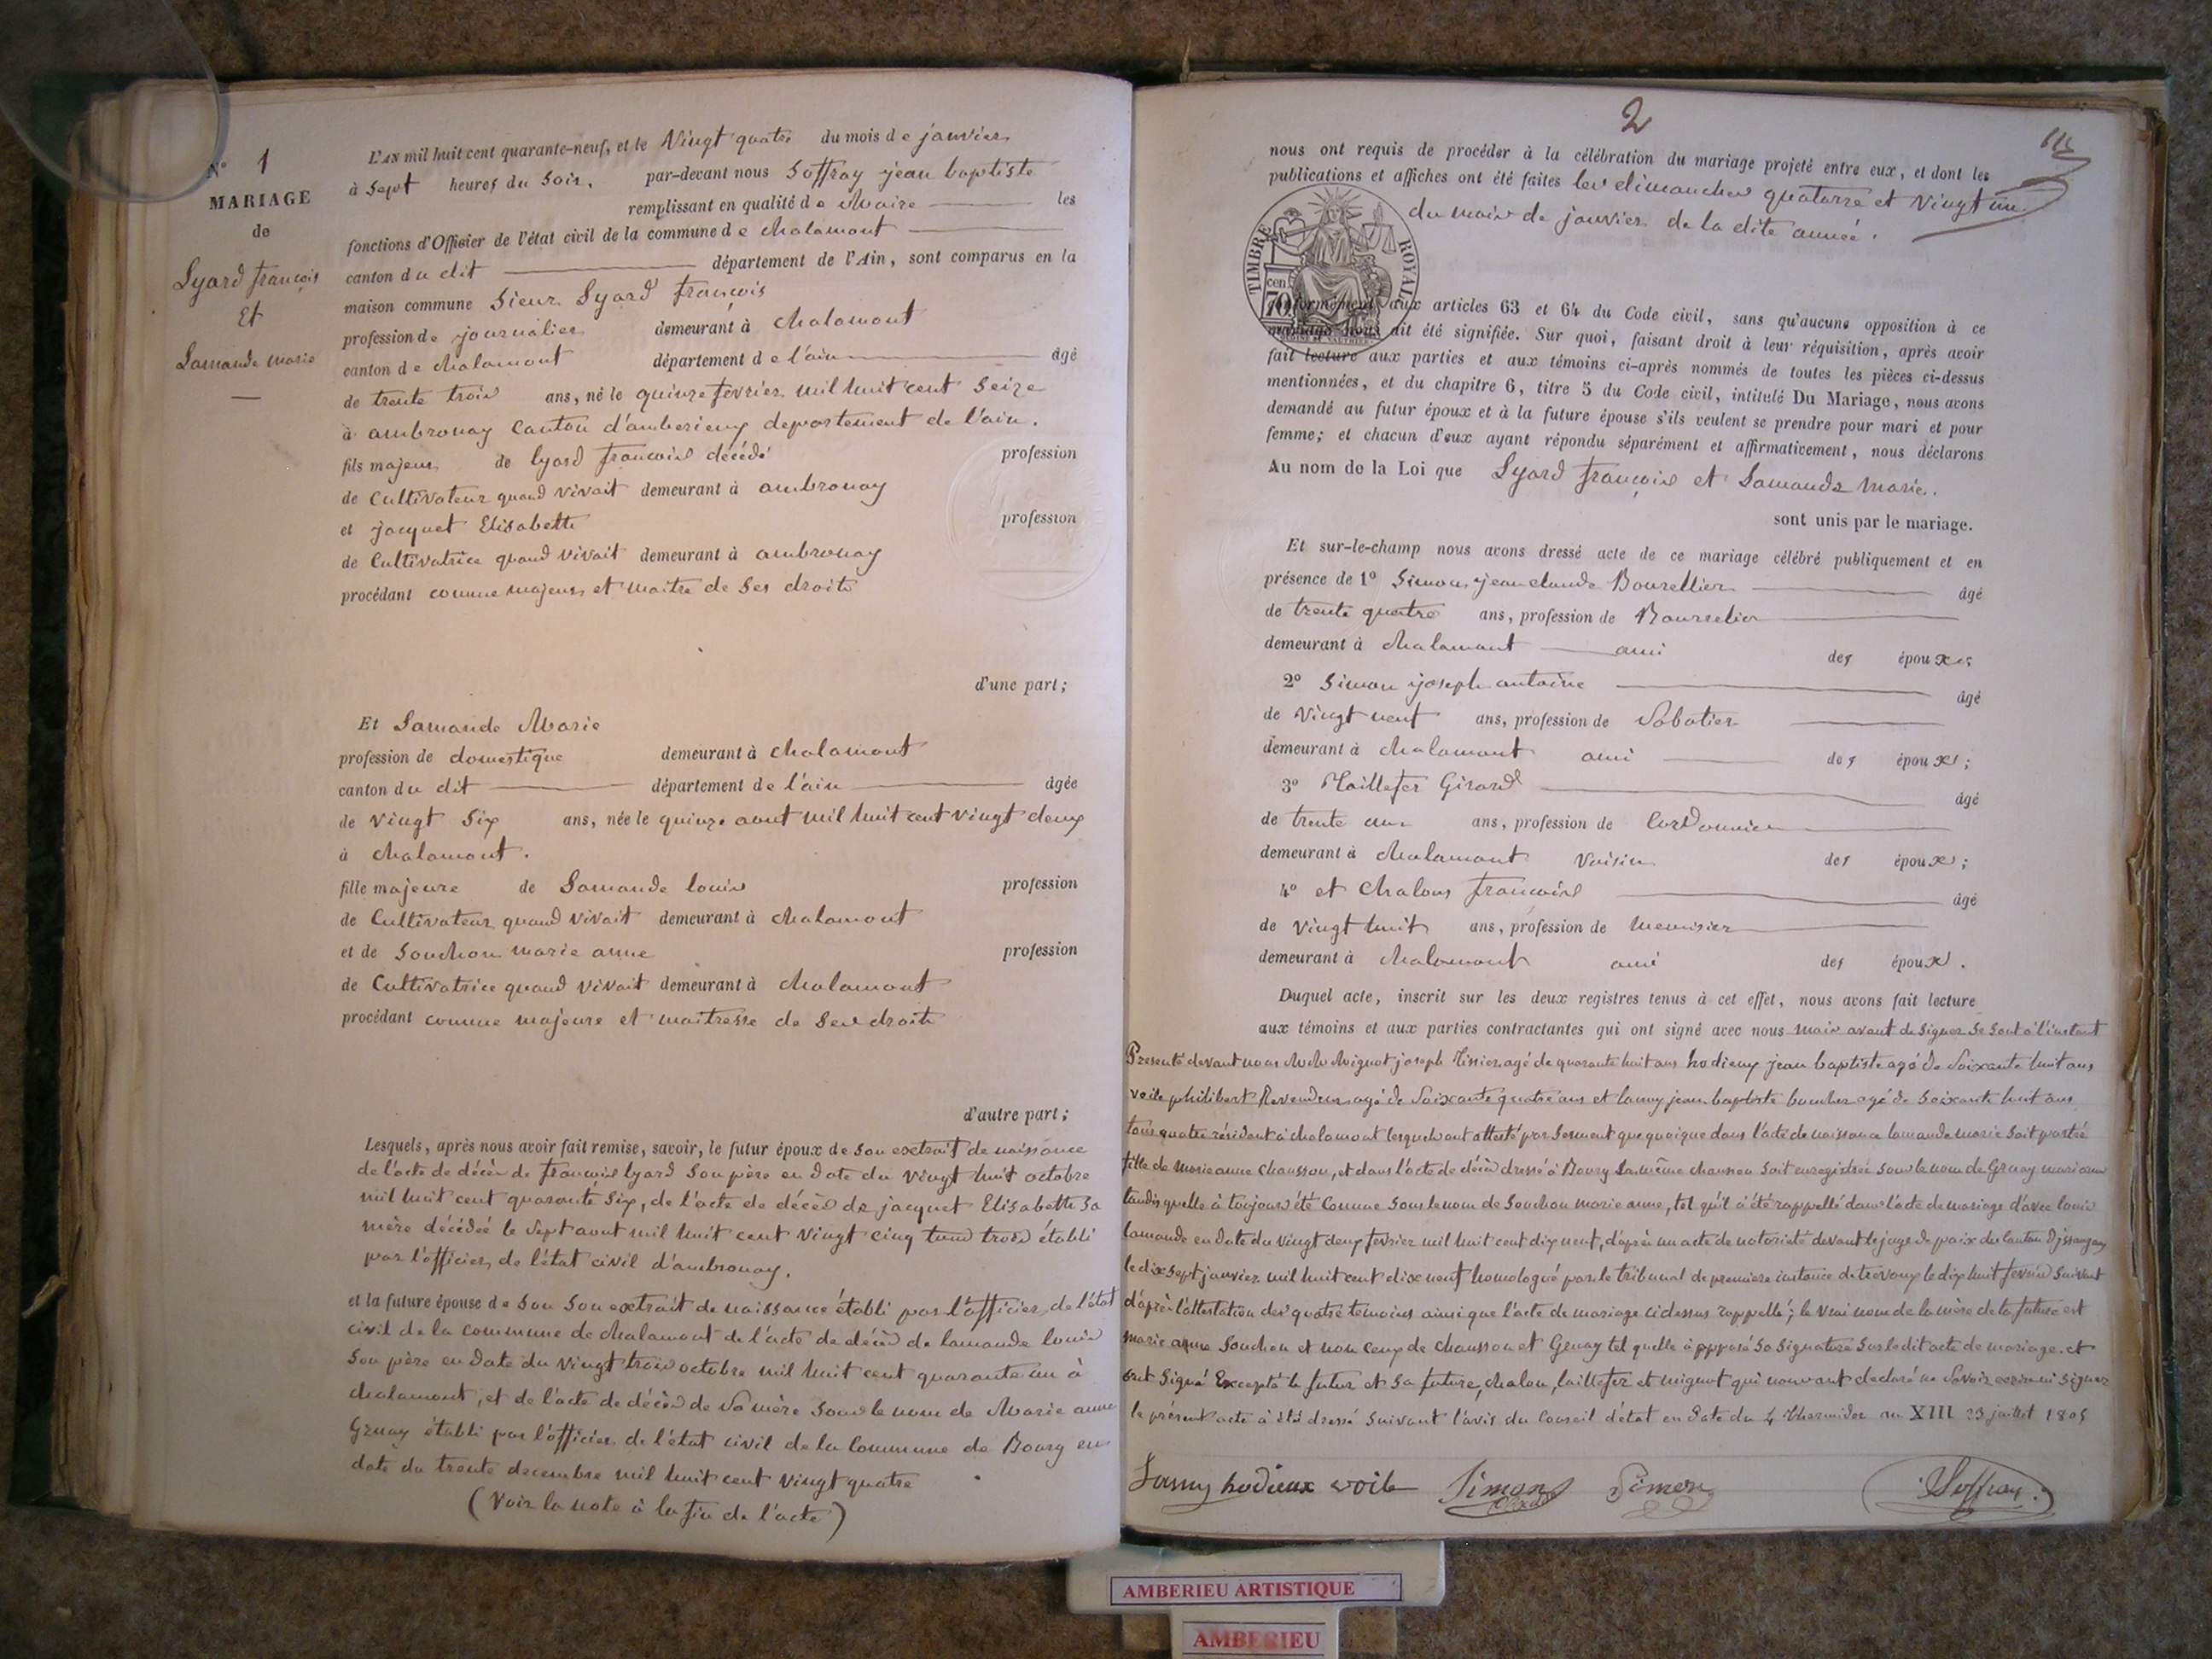 N° 1
MARIAGE
de
Lyard françois
Et
Lamande marie
L'AN mil huit cent quarante-neuf, et le Vingt quatre du mois de janvier
à Sept heures du Soir, par-devant nous Soffray jean baptiste
remplissant en qualité de Maire les
fonctions d'Officier de l'état civil de la commune de chalamont
canton du dit département de l'Ain, sont comparus en la
maison commune Sieur Lyard françois
profession de journalier demeurant à chalamont
canton de chalamont département de l'ain âgé
de trente trois ans, né le quinze fevrier mil huit cent Seize
à ambronay Canton d'amberieux departement de l'ain.
fils majeur de lyard francois décédé profession
de Cultivateur quand vivait demeurant à ambronay
et jacquet Elisabette profession
de Cultivatrice quand vivait demeurant à ambronay
procédant comme majeur et maitre de Ses droits
d'une part;
Et Lamande Marie
profession de domestique demeurant à chalamont
canton du dit département de l'ain âgée
de vingt Six ans, née le quinze aout mil huit cent vingt deux
à chalamont.
fille majeure de Lamande louis profession
de Cultivateur quand vivait demeurant à chalamont
et de Souchon marie anne profession
de Cultivatrice quand vivait demeurant à chalamont
procédant comme majeure et maitresse de Ses droits
d'autre part;
Lesquels, après nous avoir fait remise, savoir, le futur époux de Son extrait de naissance
de l'acte de décès de francois lyard Son père en date du vingt huit octobre
mil huit cent quarante Six, de l'acte de décès de jacquet Elisabette Sa
mère décédée le Sept aout mil huit cent vingt cinq tous trois établi
par l'officier de l'état civil d'ambronay.
et la future épouse de Son Son extrait de naissance établi par l'officier de l'état
civil de la commune de chalamont de l'acte de décès de lamande louis
Son père en date du vingt trois octobre mil huit cent quarante un à
chalamont, et de l'acte de décès de Sa mère Sous le nom de Marie anne
Gruay établi par l'officier de l'état civil de la Commune de Bourg en
date du trente decembre mil huit cent vingt quatre
(Voir la note à la fin de l'acte)
2
nous ont requis de procéder à la célébration du mariage projeté entre eux, et dont les
publications et affiches ont été faites les dimanches quatorze et Vingt un
du mois de janvier de la dite année.
TIMBRE ROYAL
cen. 70
conformément aux articles 63 et 64 du Code civil, sans qu'aucune opposition à ce
mariage nous ait été signifiée. Sur quoi, faisant droit à leur réquisition, après avoir
fait lecture aux parties et aux témoins ci-après nommés de toutes les pièces ci-dessus
mentionnées, et du chapitre 6, titre 5 du Code civil, intitulé Du Mariage, nous avons
demandé au futur époux et à la future épouse s'ils veulent se prendre pour mari et pour
femme; et chacun d'eux ayant répondu séparément et affirmativement, nous déclarons
Au nom de la Loi que Lyard françois et Lamande Marie.
sont unis par le mariage.
Et sur-le-champ nous avons dressé acte de ce mariage célébré publiquement et en
présence de 1° Simon jean claude Bourellier âgé
de trente quatre ans, profession de Bourrelier
demeurant à chalamont ami des époux;
2° Simon joseph antoine âgé
de vingt neuf ans, profession de Sabotier
demeurant à chalamont ami des époux;
3° Taillefer Girard âgé
de trente un ans, profession de Cordonnier
demeurant à chalamont Voisin des époux;
4° et Chalons francois âgé
de vingt huit ans, profession de menuisier
demeurant à chalamont ami des époux.
Duquel acte, inscrit sur les deux registres tenus à cet effet, nous avons fait lecture
aux témoins et aux parties contractantes qui ont signé avec nous mais avant de Signer Se Sont à l'instant
Presenté devant nous Mignot joseph Tissier agé de quarante huit ans hodieux jean baptiste agé de Soixante huit ans
voile philibert Revendeur agé de Soixante quatre ans et lanny jean baptiste boucher agé de Soixante huit ans
tous quatre résidant à chalamont lesquels ont attesté par Serment que quoique dans l'acte de naissance lamande marie Soit portée
fille de Marie anne Chausson, et dans l'acte de décès dressé à Bourg la même chausson Soit enregistrée Sous le nom de Gruay marie anne
tandis quelle à toujours été Connue Sous le nom de Souchon marie anne, tel qu'il à été rappellé dans l'acte de mariage d'avec louis
lamande en date du vingt deux fevrier mil huit cent dix neuf, d'après un acte de notoriété devant le juge de paix du Canton
le dix Sept janvier mil huit cent dix neuf homologué par le tribunal de premiere instance de trevoux le dix huit fevrier Suivant
d'après l'attestation des quatre temoins ainsi que l'acte de mariage cidessus rappellé; le vrai nom de la mère de la future est
marie anne Souchon et non ceux de chausson et Gruay tel quelle à apposé Sa Signature Sur le dit acte de mariage. et
ont Signé Excepté le futur et Sa future, chalon, taillefer et mignot qui nous ont declaré ne Savoir ecrire ni Signer
le présent acte à été dressé Suivant l'avis du Conseil d'état en date du 4 thermidor an XIII 23 juillet 1805
Lanny hodieux voile Simon Simon Soffray
AMBERIEU ARTISTIQUE
AMBERIEU